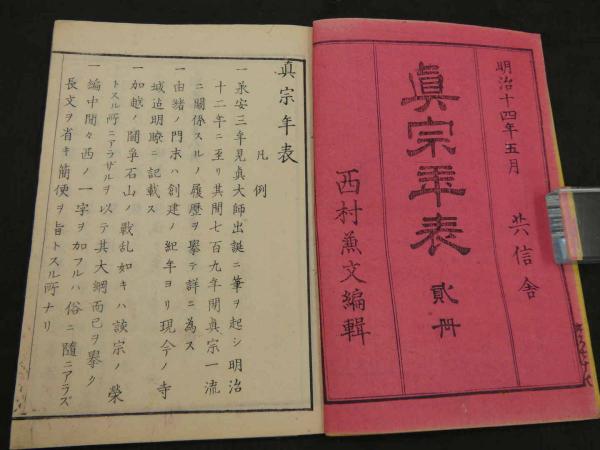 明治十四年五月 共信舎
真宗年表 貳冊
西村兼文編輯
真宗年表
凡例
一 承安三年見真大師出誕ニ筆ヲ起シ明治
十二年ニ至リ其間七百九年間真宗一流
ニ關係スルノ履歴ヲ擧テ詳ニ為ス
一 由緒ノ門末ハ創建ノ紀年ヨリ現今ノ寺
域迄明瞭ニ記載ス
一 加越ノ鬪爭石山ノ戰乱如キハ該宗ノ榮
トスル所ニアラザルヲ以テ其大綱而已ヲ擧ク
一 編中間々西ノ一字ヲ加フルハ俗ニ隨ニアラズ
長文ヲ省キ簡便ヲ旨トスル所ナリ